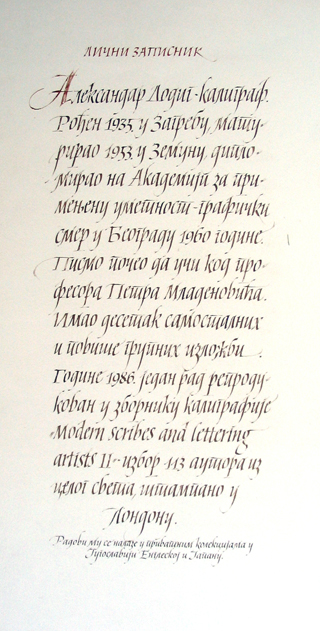 ЛИЧНИ ЗАПИСНИК
Александар Додиг - калиграф.
Рођен 1935. у Загребу, мату-
рирао 1953. у Земуну, дипло-
мирао на Академији за при-
мењену уметност - графички
смер у Београду 1960 године.
Писмо почео да учи код про-
фесора Петра Младеновића.
Имао десетак самосталних
и повише групних изложби.
Године 1986. један рад репроду-
кован у зборнику калиграфије
„Modern scribes and lettering
artists II"- избор из аутора из
целог света, штампано у
Лондону.
Радови му се налазе у приватним колекцијама у
Југославији Енглеској и Јапану.